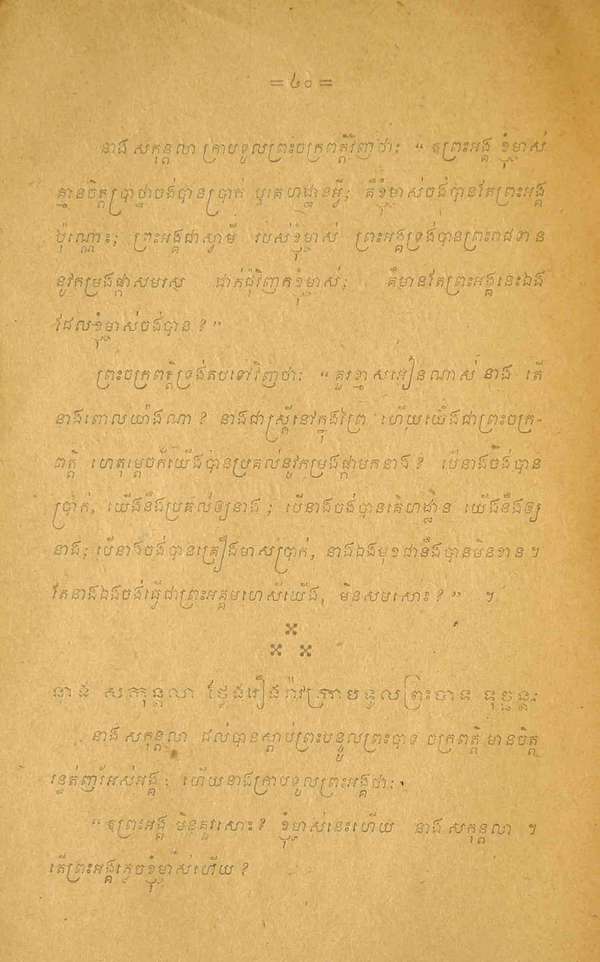 = ៤០ =
នាង សកុន្តលា ក្រាបទូលព្រះចក្រពត្តិវិញថា: “ ឱព្រះអង្គ ខ្ញុំម្ចាស់
គ្មានចិត្តប្រាថ្នាចង់បានប្រាក់ ឬគេហដ្ឋានអ្វី; គឺខ្ញុំម្ចាស់ចង់បានតែព្រះអង្គ
ប៉ុណ្ណោះ; ព្រះអង្គជាស្វាមី របស់ខ្ញុំម្ចាស់ ព្រះអង្គទ្រង់បានព្រះរាជទាន
នូវកម្រងផ្កាសមរស ដាក់ជុំវិញកខ្ញុំម្ចាស់; គឺមានតែព្រះអង្គនេះឯង
ដែលខ្ញុំម្ចាស់ចង់បាន ? ”
ព្រះចក្រពត្តិទ្រង់តបទៅវិញថា: “ គួរខ្មាសអៀនណាស់ នាង តើ
នាងពោលយ៉ាងណា ? នាងជាស្ត្រីនៅក្នុងព្រៃ ហើយយើងជាព្រះចក្រ-
ពត្តិ ហេតុម្តេចក៏យើងបានប្រគល់នូវកម្រងផ្កាមកនាង ? បើនាងចង់បាន
ប្រាក់, យើងនឹងប្រគល់ឲ្យនាង ; បើនាងចង់បានគេហដ្ឋាន យើងនឹងឲ្យ
នាង; បើនាងចង់បានគ្រឿងមាសប្រាក់, នាងឯងមុខជានឹងបានមិនខាន ។
តែនាងឯងចង់ធ្វើជាព្រះអគ្គមហេសីយើង, មិនសមសោះ ? ” ។
នាង សកុន្តលា ថ្លែងរឿងរ៉ាវក្រាបទូលព្រះបាទ ទុស្សន្តៈ
នាង សកុន្តលា ដល់បានស្តាប់ព្រះបន្ទូលព្រះបាទ ចក្រពត្តិ មានចិត្ត
រន្ធត់ញ័រអស់អង្គ; ហើយនាងក្រាបទូលព្រះអង្គថា:
“ ឱព្រះអង្គ មិនគួរសោះ ? ខ្ញុំម្ចាស់នេះហើយ នាង សកុន្តលា ។
តើព្រះអង្គភ្លេចខ្ញុំម្ចាស់ហើយ ?